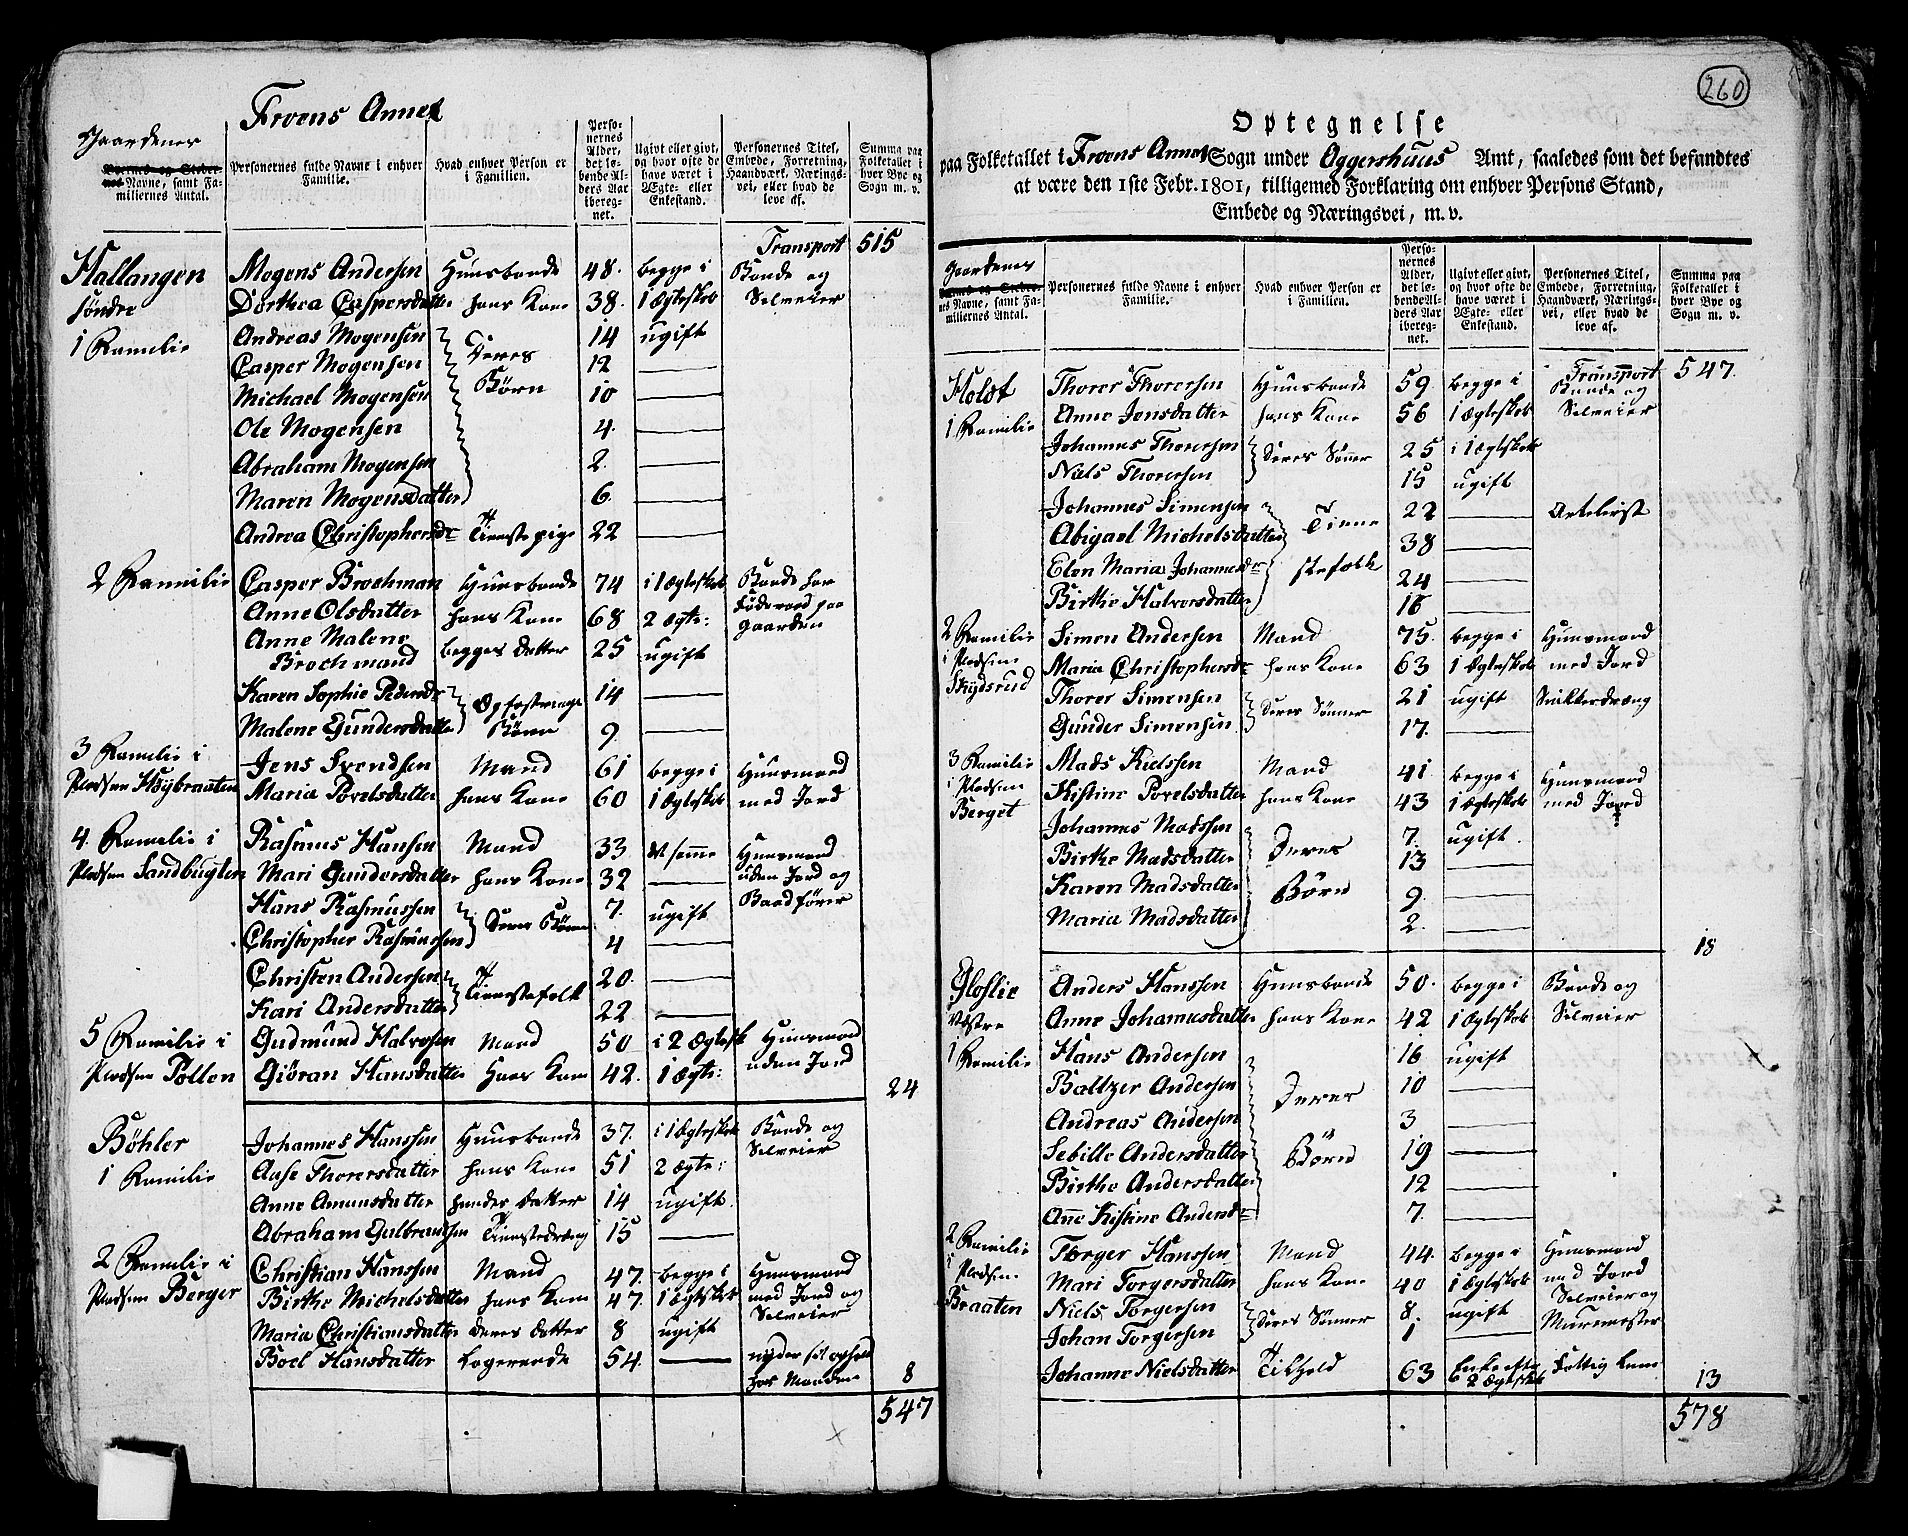 Froens Annex
Gaardenes
Byernes og Stedernes Navne, samt Familiernes Antal.
Personernes fulde Navne i enhver Familie.
Hvad enhver Person er i Familien.
Personernes Alder, det løbende Alders Aar iberegnet.
Ugivt eller givt, og hvor ofte de have været i Ægte- eller Enkestand.
Personernes Titel, Embede, Forretning, Haandværk, Næringsvei, eller hvad de leve af.
Summa paa Folketallet i hver Bye og Sogn m. v.
Transport 515
Hallangen Mogens Andersen Huusbonde 48. begge i Bonde og
søndre Dorthea Caspersdatter hans Kone 38. 1 Ægteskab Selveier
1 Familie Andreas Mogensen Deres 14 ugift
Casper Mogensen Børn 12
Michael Mogensen 10
Ole Mogensen 4.
Abraham Mogensen 2.
Maren Mogensdatter 6.
Andrea Christophersdr Tienistepige 22
2 Familie Casper Brochman Huusbonde 74 i 1 Ægteskab Bonde har
Anne Olsdatter hans Kone 68 2 Ægte: Føderaad paa
Anne Malene begges datter 25 ugift gaarden
Brochmand
Karen Sophie Pedersdr Opfostrings 14
Malene Gundersdatter Børn 9
3 Familie i Jens Svendsen Mand 61 begge i Huusmand
Pladsen Høybraaten Maria Povelsdatter hans Kone 60 1 Ægteskab med Jord
4 Familie i Rasmus Hansen Mand 33 samme Huusmand
Pladsen Sandbugten Mari Gundersdatter hans Kone 32 uden Jord og
Hans Rasmussen Deres Børn 7. ugift Baadfører
Christopher Rasmussen 4
Christen Andersen Tienistefolk 20.
Kari Andersdatter 22
5 Familie i Gudmund Halvorsen Mand 50 i 2 Ægtesk Huusmand
Pladsen Pollen Giøran Hansdatter Hans Kone 42. 1 Ægte: uden Jord
24
Böhler Johannes Hanssen Huusbonde 37. i 1 Ægteskab Bonde og
1 Familie Aase Thorersdatter hans Kone 51 2 Ægte: Selveier
Anne Amunsdatter hendes datter 14 ugift.
Abraham Gulbransen Tienistedreng 15
2 Familie i Christian Hanssen Mand 47. begge i Huusmand
Pladsen Berger Birthe Michelsdatter hans Kone 47. 1 Ægteskab med Jord og
Maria Christiansdatter deres datter 8 ugift Selveier
Boel Hansdatter Logerende 54. nyder sit ophold
hos Manden 8
547
260
Optegnelse
paa Folketallet i Froens Annex Sogn under Aggershuus Amt, saaledes som det befandtes
at være den 1ste Febr. 1801, tilligemed Forklaring om enhver Persons Stand,
Embede og Næringsvei, m. v.
Gaardenes
Byernes og Stedernes Navne, samt Familiernes Antal.
Personernes fulde Navne i enhver Familie.
Hvad enhver Person er i Familien.
Personernes Alder, det løbende Alders Aar iberegnet.
Ugivt eller givt, og hvor ofte de have været i Ægte- eller Enkestand.
Personernes Titel, Embede, Forretning, Haandværk, Næringsvei, eller hvad de leve af.
Summa paa Folketallet i hver Bye og Sogn m. v.
Transport 547.
Holst Thorer Thorersen Huusbonde 59 begge i Bonde og
1 Familie Anne Jensdatter hans Kone 56 1 Ægteskab Selveier
Johannes Thorersen Deres Sønner 25 i 1 Ægteskab
Niels Thorersen 15 ugift
Johannes Simensen Tiene 22 Artelerist
Abigael Michelsdatter 38
Elen Maria Johannesdr stefolk 24
Birthe Halvorsdatter 16
2 Familie Simon Andersen Mand 75. begge i Huusmand
i Pladsen Maria Christophersdr hans Kone 63 1 Ægteskab med Jord
Skydsrud Thorer Simensen Deres Sønner 21 ugift Snikkerdreng
Gunder Simensen 17.
3 Familie Mads Nielssen Mand 41 begge i Huusmand
i Pladsen Kistine Povelsdatter hans Kone 43 1 Ægteskab med Jord
Berget Johannes Madssen Deres 7. ugift.
Birthe Madsdatter 13
Karen Madsdatter Børn 9
Maria Madsdatter 2.
18
Gloslie Anders Hanssen Huusbonde 50. begge i Bonde og
Vestre Anne Johannesdatter hans Kone 42 1 Ægteskab Selveier
1 Familie Hans Andersen Deres 16 ugift
Baltzer Andersen 10
Andreas Andersen 3
Sebille Andersdatter Børn 19
Birthe Andersdatter 12
Anne Kistine Andersdr 7.
2 Familie Torger Hanssen Mand 44. begge i Huusmand
i Pladsen Mari Torgersdatter hans Kone 40 1 Ægteskab med Jord
Braaten Niels Torgersen Deres Sønner 8. ugift Selveier og
Johan Torgersen 1 Muremester
Johanne Nielsdatter Tilhold 63 Enke efter Fattig Lem
2 Ægteskab 13
578